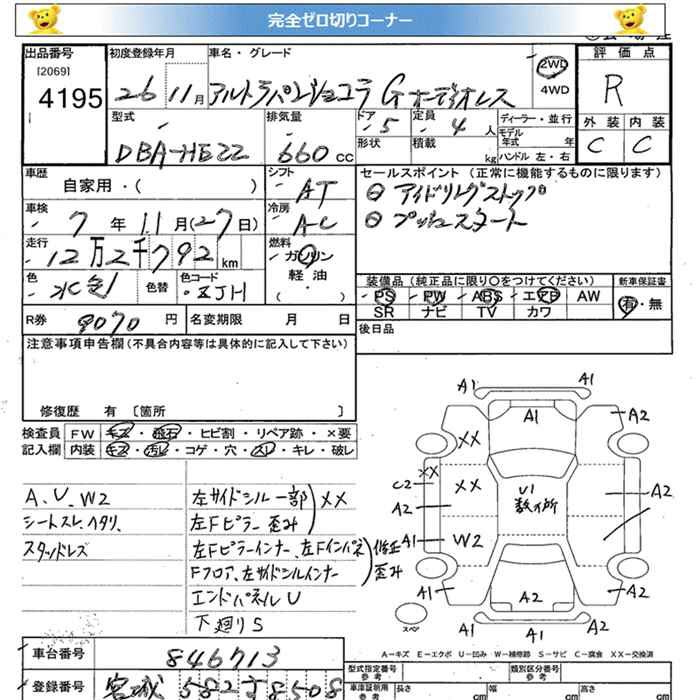 完全ゼロ切りコーナー
出品番号
[2069]
4195
初度登録年月
26 11月
車名・グレード
アルトラパンショコラ G オーディオレス
2WD
4WD
評価点
R
型式
DBA-HE22
排気量
660 cc
ドア
5
定員
4 人
形状
積載
kg
ディーラー・並行
モデル年式 年
ハンドル 左・右
外装 内装
C C
車歴
自家用・( )
シフト
AT
車検
7 年 11 月(27日)
冷房
AC
走行
12万2千792 km
燃料
ガソリン
軽油
( )
色
水色
色替
色コード
ZJH
セールスポイント(正常に機能するものに限ります)
アイドリングストップ
プッシュスタート
装備品(純正品に限り○をつけてください)
新車保証書
PS PW ABS エアB AW
SR ナビ TV カワ
有・無
R券
9070 円
名変期限 月 日
後日品
注意事項申告欄(不具合内容等は具体的に記入して下さい)
修復歴 有 [箇所 ]
検査員 FW キズ・飛石・ヒビ割・リペア跡・×要
記入欄 内装 キズ・汚レ・コゲ・穴・スレ・キレ・破レ
A、U、W2
シートスレ、ヘタリ、
スタッドレス
左サイドシル一部 XX
左Fピラー 歪み
左Fピラーインナー、左Fインパネ 修正
Fフロア、左サイドシルインナー 歪み
エンドパネルU
下廻りS
A1 A1
A1
A2
XX
XX
C2
XX
A2
U1
数ヶ所
A2
A1
W2
A1
A2
A2
A1 A1
スペア
A－キズ E－エクボ U－凹み W－補修跡 S－サビ C－腐食 XX－交換済
車台番号
846713
登録番号
宮城 582 す 8508
型式指定番号
参考
類別区分番号
参考
車庫証明用
参考
長さ cm
幅 cm
高さ cm